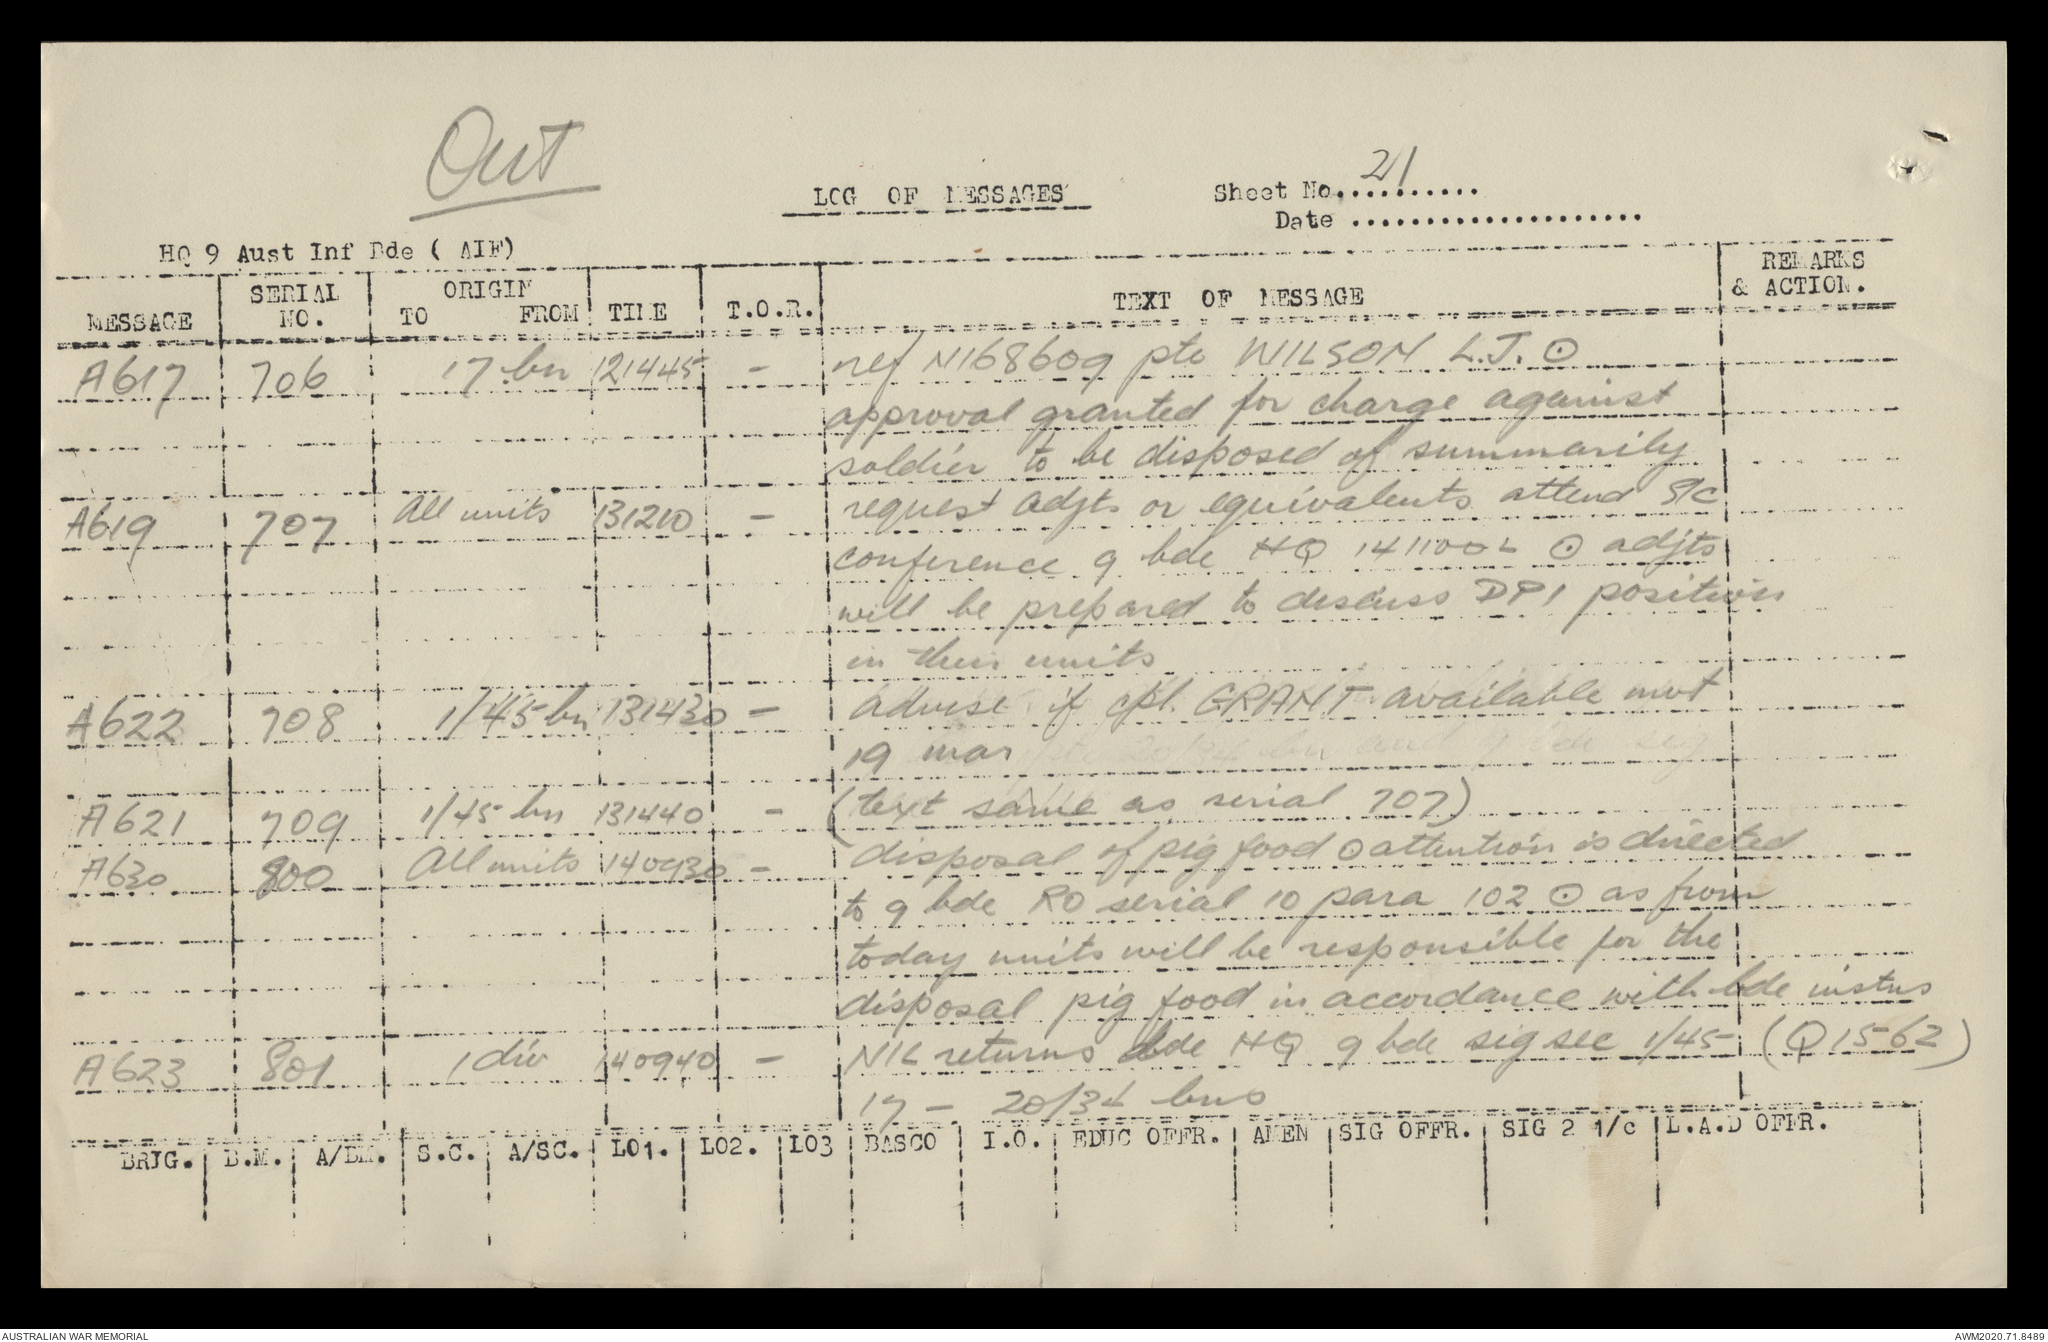 Out
LOG OF MESSAGES
Sheet No. 21
Date ....................
HQ 9 Aust Inf Bde ( AIF)
MESSAGE | SERIAL NO. | ORIGIN TO FROM | TIME | T.O.R. | TEXT OF MESSAGE | REMARKS & ACTION.
A617 706 17 bn 121445 - ref N168609 pte WILSON L.J. ⊙
approval granted for charge against
soldier to be disposed of summarily
A619 707 All units 131210 - request adjts or equivalents attend S/C
conference 9 bde HQ 141100L ⊙ adjts
will be prepared to discuss DP1 position
in their units
A622 708 1/45 bn 131430 - advise if cpl. GRANT available mvt
19 mar
A621 709 1/45 bn 131440 - (text same as serial 707)
A630 800 All units 140930 - disposal of pig food ⊙ attention is directed
to 9 bde RO serial 10 para 102 ⊙ as from
today units will be responsible for the
disposal pig food in accordance with bde instns
A623 801 1 div 140940 - NIL returns bde HQ 9 bde sig sec 1/45 (Q1562)
17 - 20/34 bns
BRIG. | B.M. | A/BM. | S.C. | A/SC. | LO1. | LO2. | LO3 | BASCO | I.O. | EDUC OFFR. | AMEN | SIG OFFR. | SIG 2 1/c | L.A.D OFFR.
AUSTRALIAN WAR MEMORIAL
AWM2020.71.8489